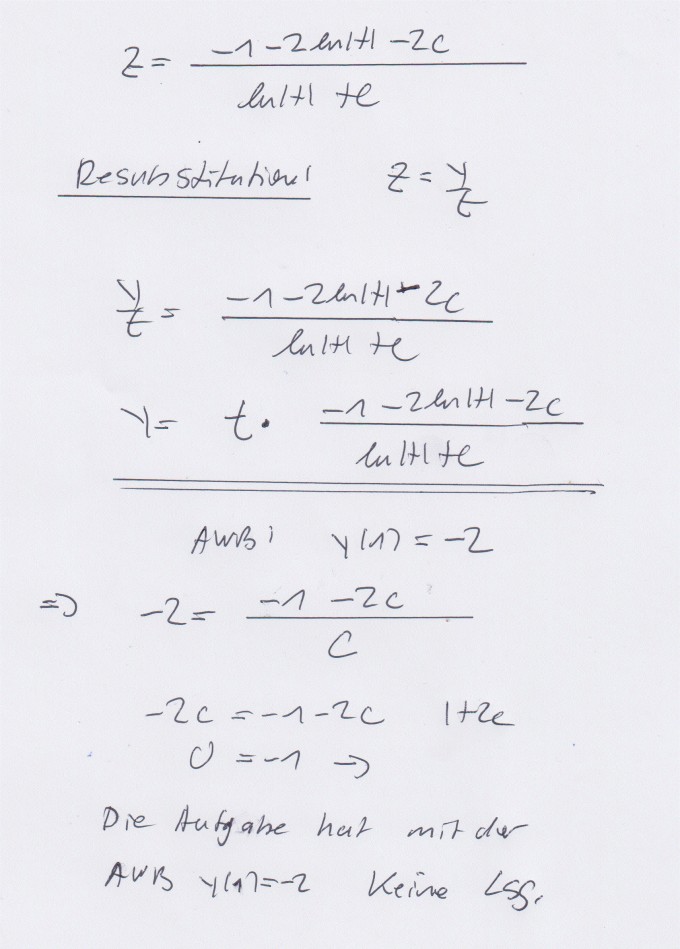 z = (-1 - 2 ln|t| - 2c) / (ln|t| + c)
Resubstitution: z = y/t
y/t = (-1 - 2 ln|t| - 2c) / (ln|t| + c)
y = t · (-1 - 2 ln|t| - 2c) / (ln|t| + c)
AWB: y(1) = -2
=> -2 = (-1 - 2c) / C
-2c = -1 - 2c |+2c
0 = -1 →
Die Aufgabe hat mit der
AWB y(1)=-2 Keine Lsg.